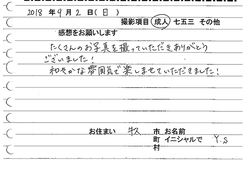 2018年9月2日(日)
撮影項目 成人 七五三 その他
感想をお願いします
たくさんのお写真を撮っていただきありがとう
ございました!
和やかな雰囲気で楽しませていただきました!
お住まい 市 町 村 お名前 イニシャルで Y.S